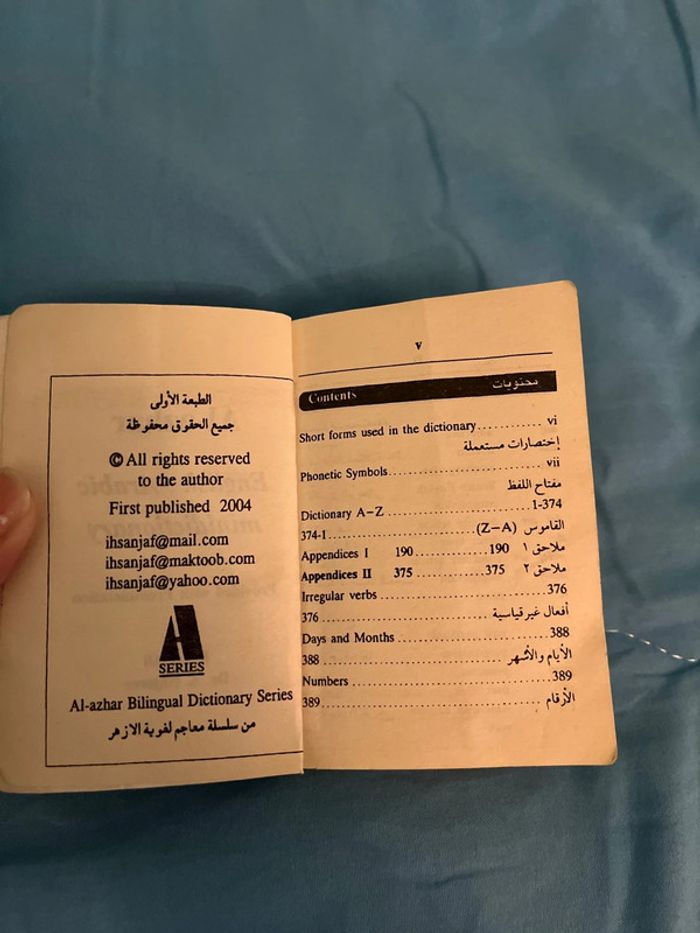 الطبعة الأولى
جميع الحقوق محفوظة
© All rights reserved
to the author
First published 2004
ihsanjaf@mail.com
ihsanjaf@maktoob.com
ihsanjaf@yahoo.com
A
SERIES
Al-azhar Bilingual Dictionary Series
من سلسلة معاجم لغوية الازهر
v
Contents محتويات
Short forms used in the dictionary............ vi
إختصارات مستعملة
Phonetic Symbols.................................. vii
مفتاح اللفظ
Dictionary A-Z...................................1-374
374-1...............................(Z-A) القاموس
Appendices I 190..............190 ملاحق ١
Appendices II 375..............375 ملاحق ٢
Irregular verbs....................................376
376....................................أفعال غير قياسية
Days and Months................................388
388....................................الأيام والأشهر
Numbers...........................................389
389...........................................الأرقام